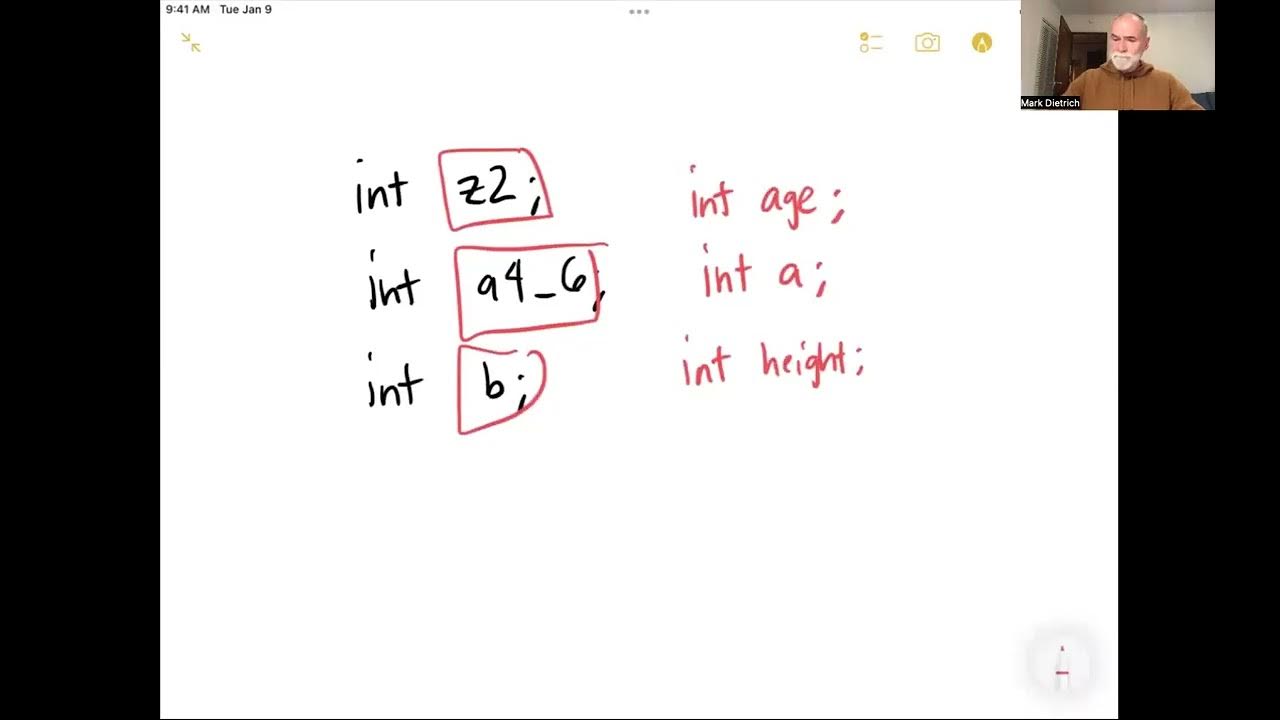 9:41 AM Tue Jan 9
Mark Dietrich
int z2;
int age;
int a4_6;
int a;
int b;
int height;